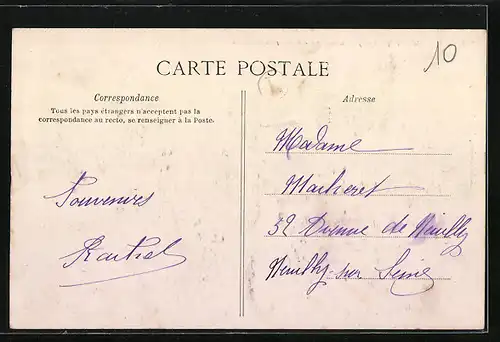 10
CARTE POSTALE
Correspondance
Tous les pays étrangers n'acceptent pas la
correspondance au recto, se renseigner à la Poste.
Souvenirs
Adresse
Madame
32 Avenue de Neuilly
Neuilly-sur Seine